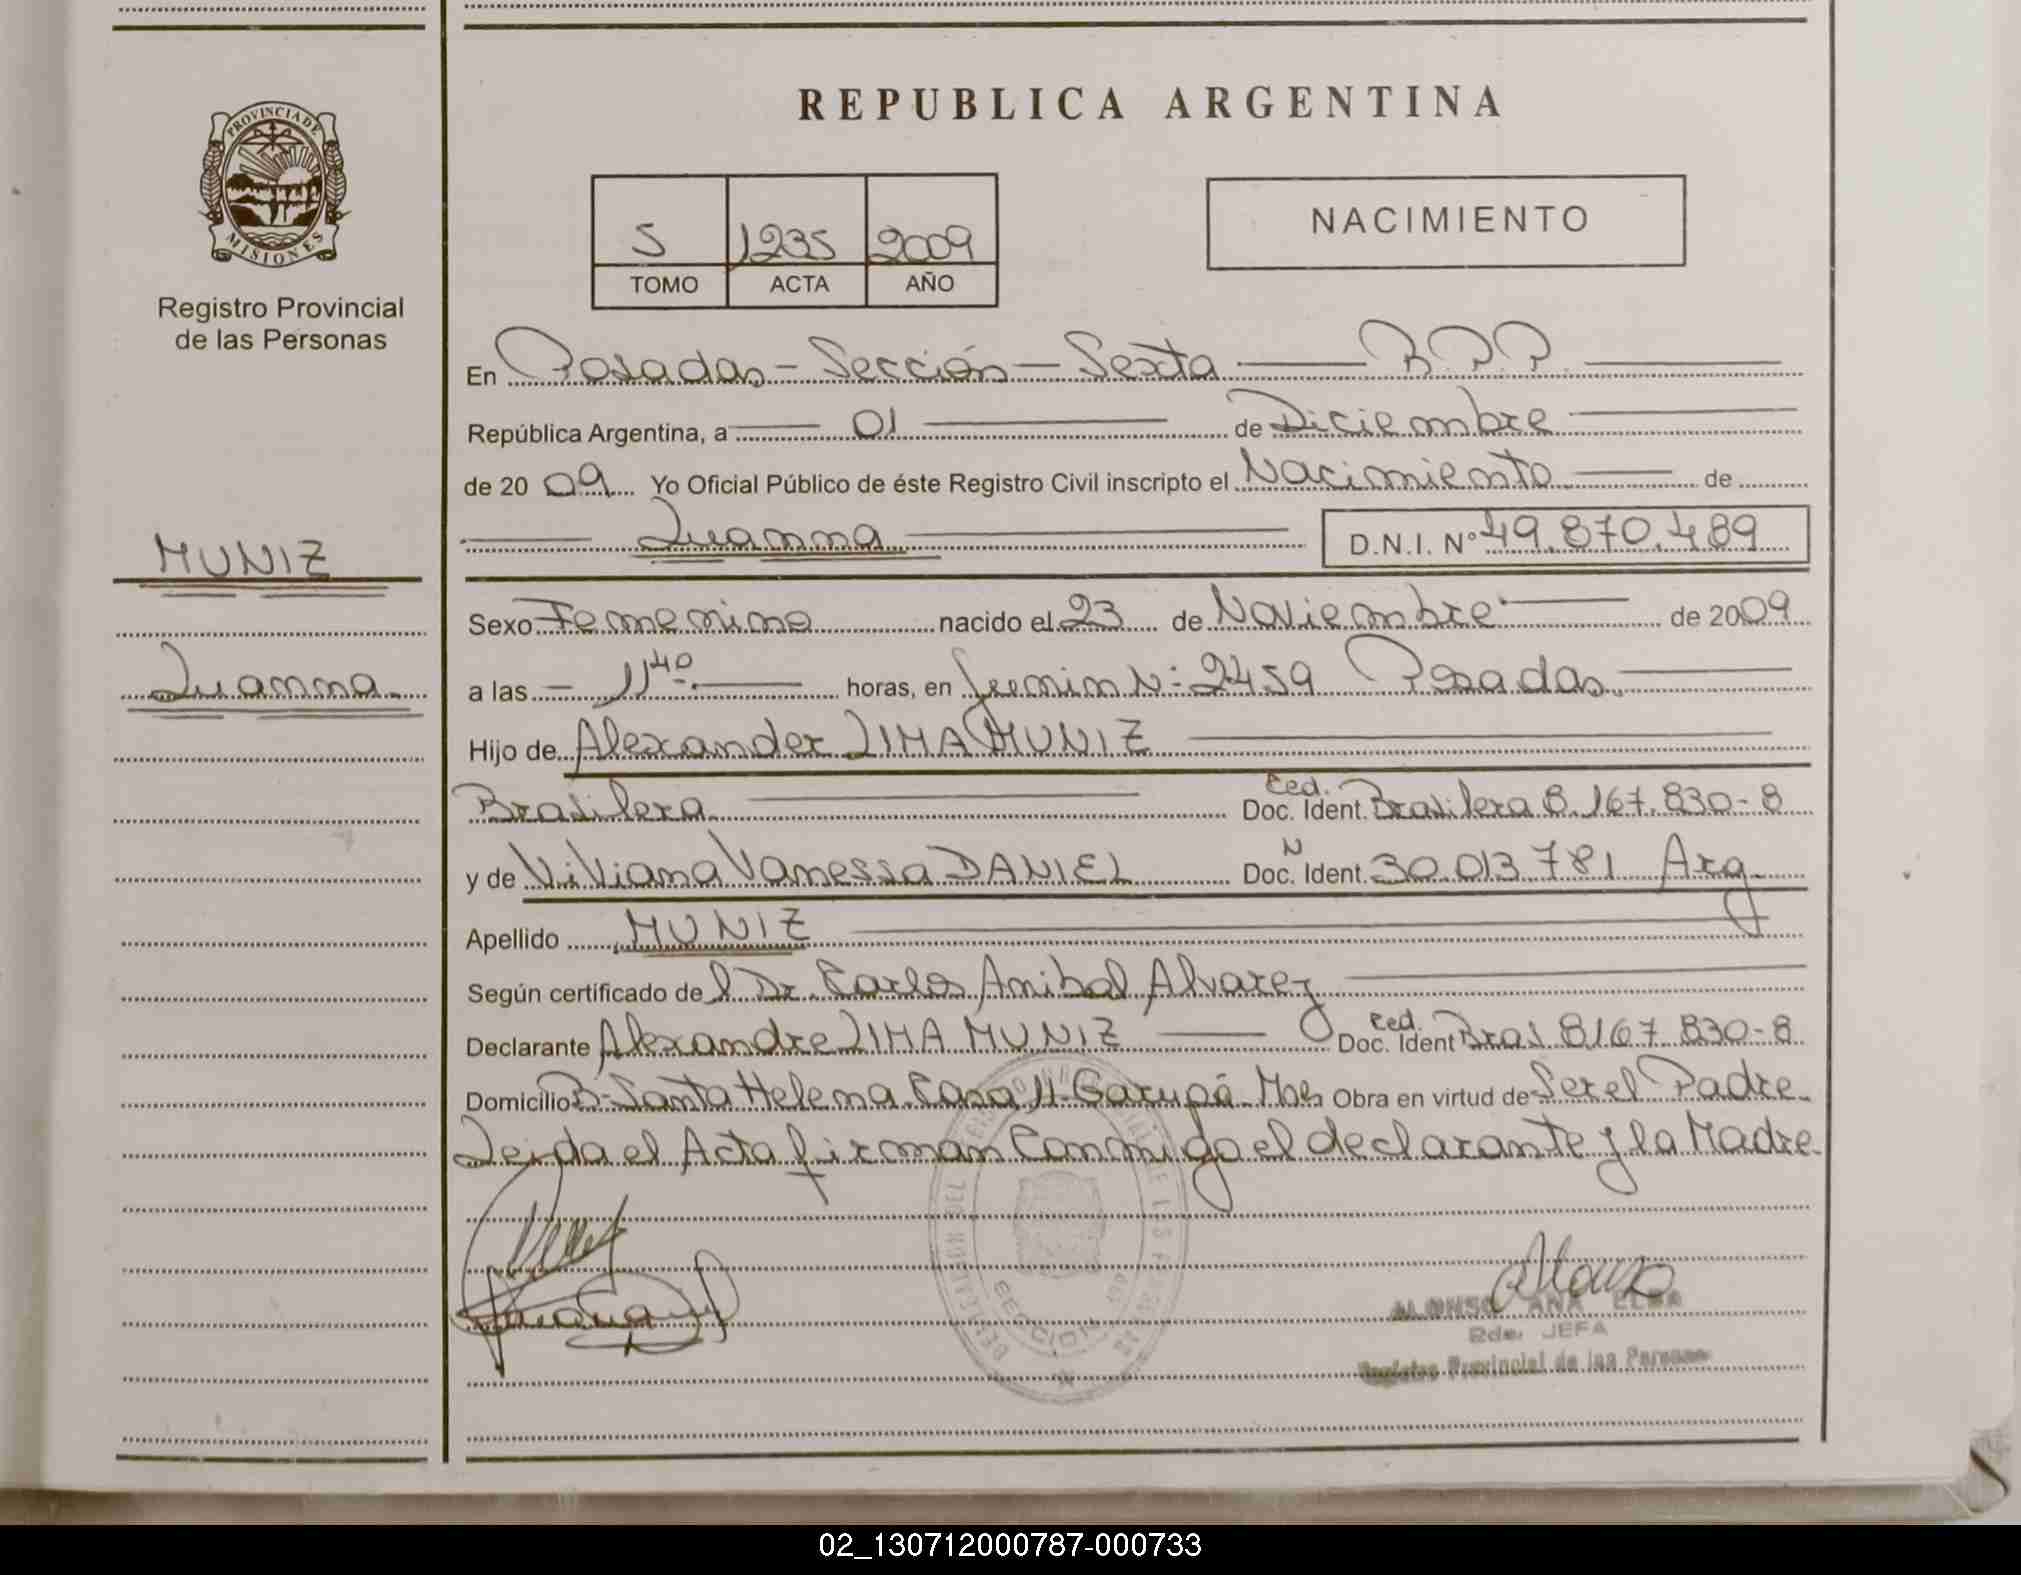 REPUBLICA ARGENTINA
PROVINCIA DE
MISIONES
Registro Provincial
de las Personas
5 1235 2009
TOMO ACTA AÑO
NACIMIENTO
En Posadas - Sección - Sexta R.P.P.
República Argentina, a 01 de Diciembre
de 2009 Yo Oficial Público de éste Registro Civil inscripto el Nacimiento de
Luanna D.N.I. N° 49.870.489
MUNIZ
Luanna
Sexo Femenino nacido el 23 de Noviembre de 2009
a las 11 40 horas, en Junin N: 2459 Posadas.
Hijo de Alexander LIMA MUNIZ
Brasilera Ced. Doc. Ident. Brasilera 8.167.830-8
y de Viviana Vanessa DANIEL N Doc. Ident. 30.013.781 Arg.
Apellido MUNIZ
Según certificado del Dr. Carlos Anibal Alvarez
Declarante Alexandre LIMA MUNIZ Ced. Doc. Ident Bras 8.167.830-8
Domicilio B: Santa Helena Casa 11- Garupá- Mnes Obra en virtud de Ser el Padre.
Leida el Acta firman Conmigo el declarante y la Madre.
ALONSO ANA ELSA
JEFA
Registro Provincial de las Personas
02_130712000787-000733